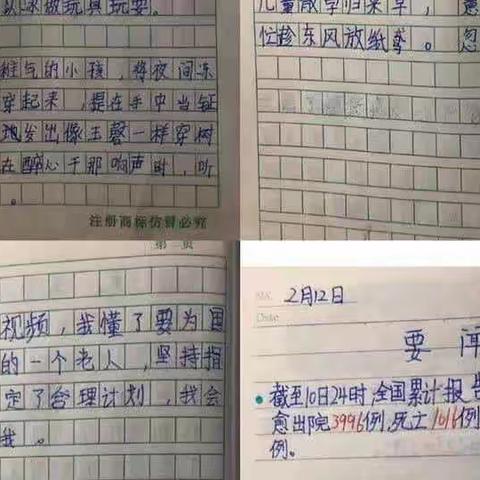 以冰做玩具玩耍。
稚气的小孩,将夜间冻
穿起来,提在手中当钲
地发出像玉磬一样穿树
在醉心于那响声时,听
。
注册商标仿冒必究
儿童散学归来早,意
位趁东风放纸鸢。忽
第 页
视频,我懂了要为国
的一个老人,坚持指
定了合理计划,我会
我。
2月12日
Date
要闻
• 截至10日24时,全国累计报告
愈出院3996例,死亡1016例
例。